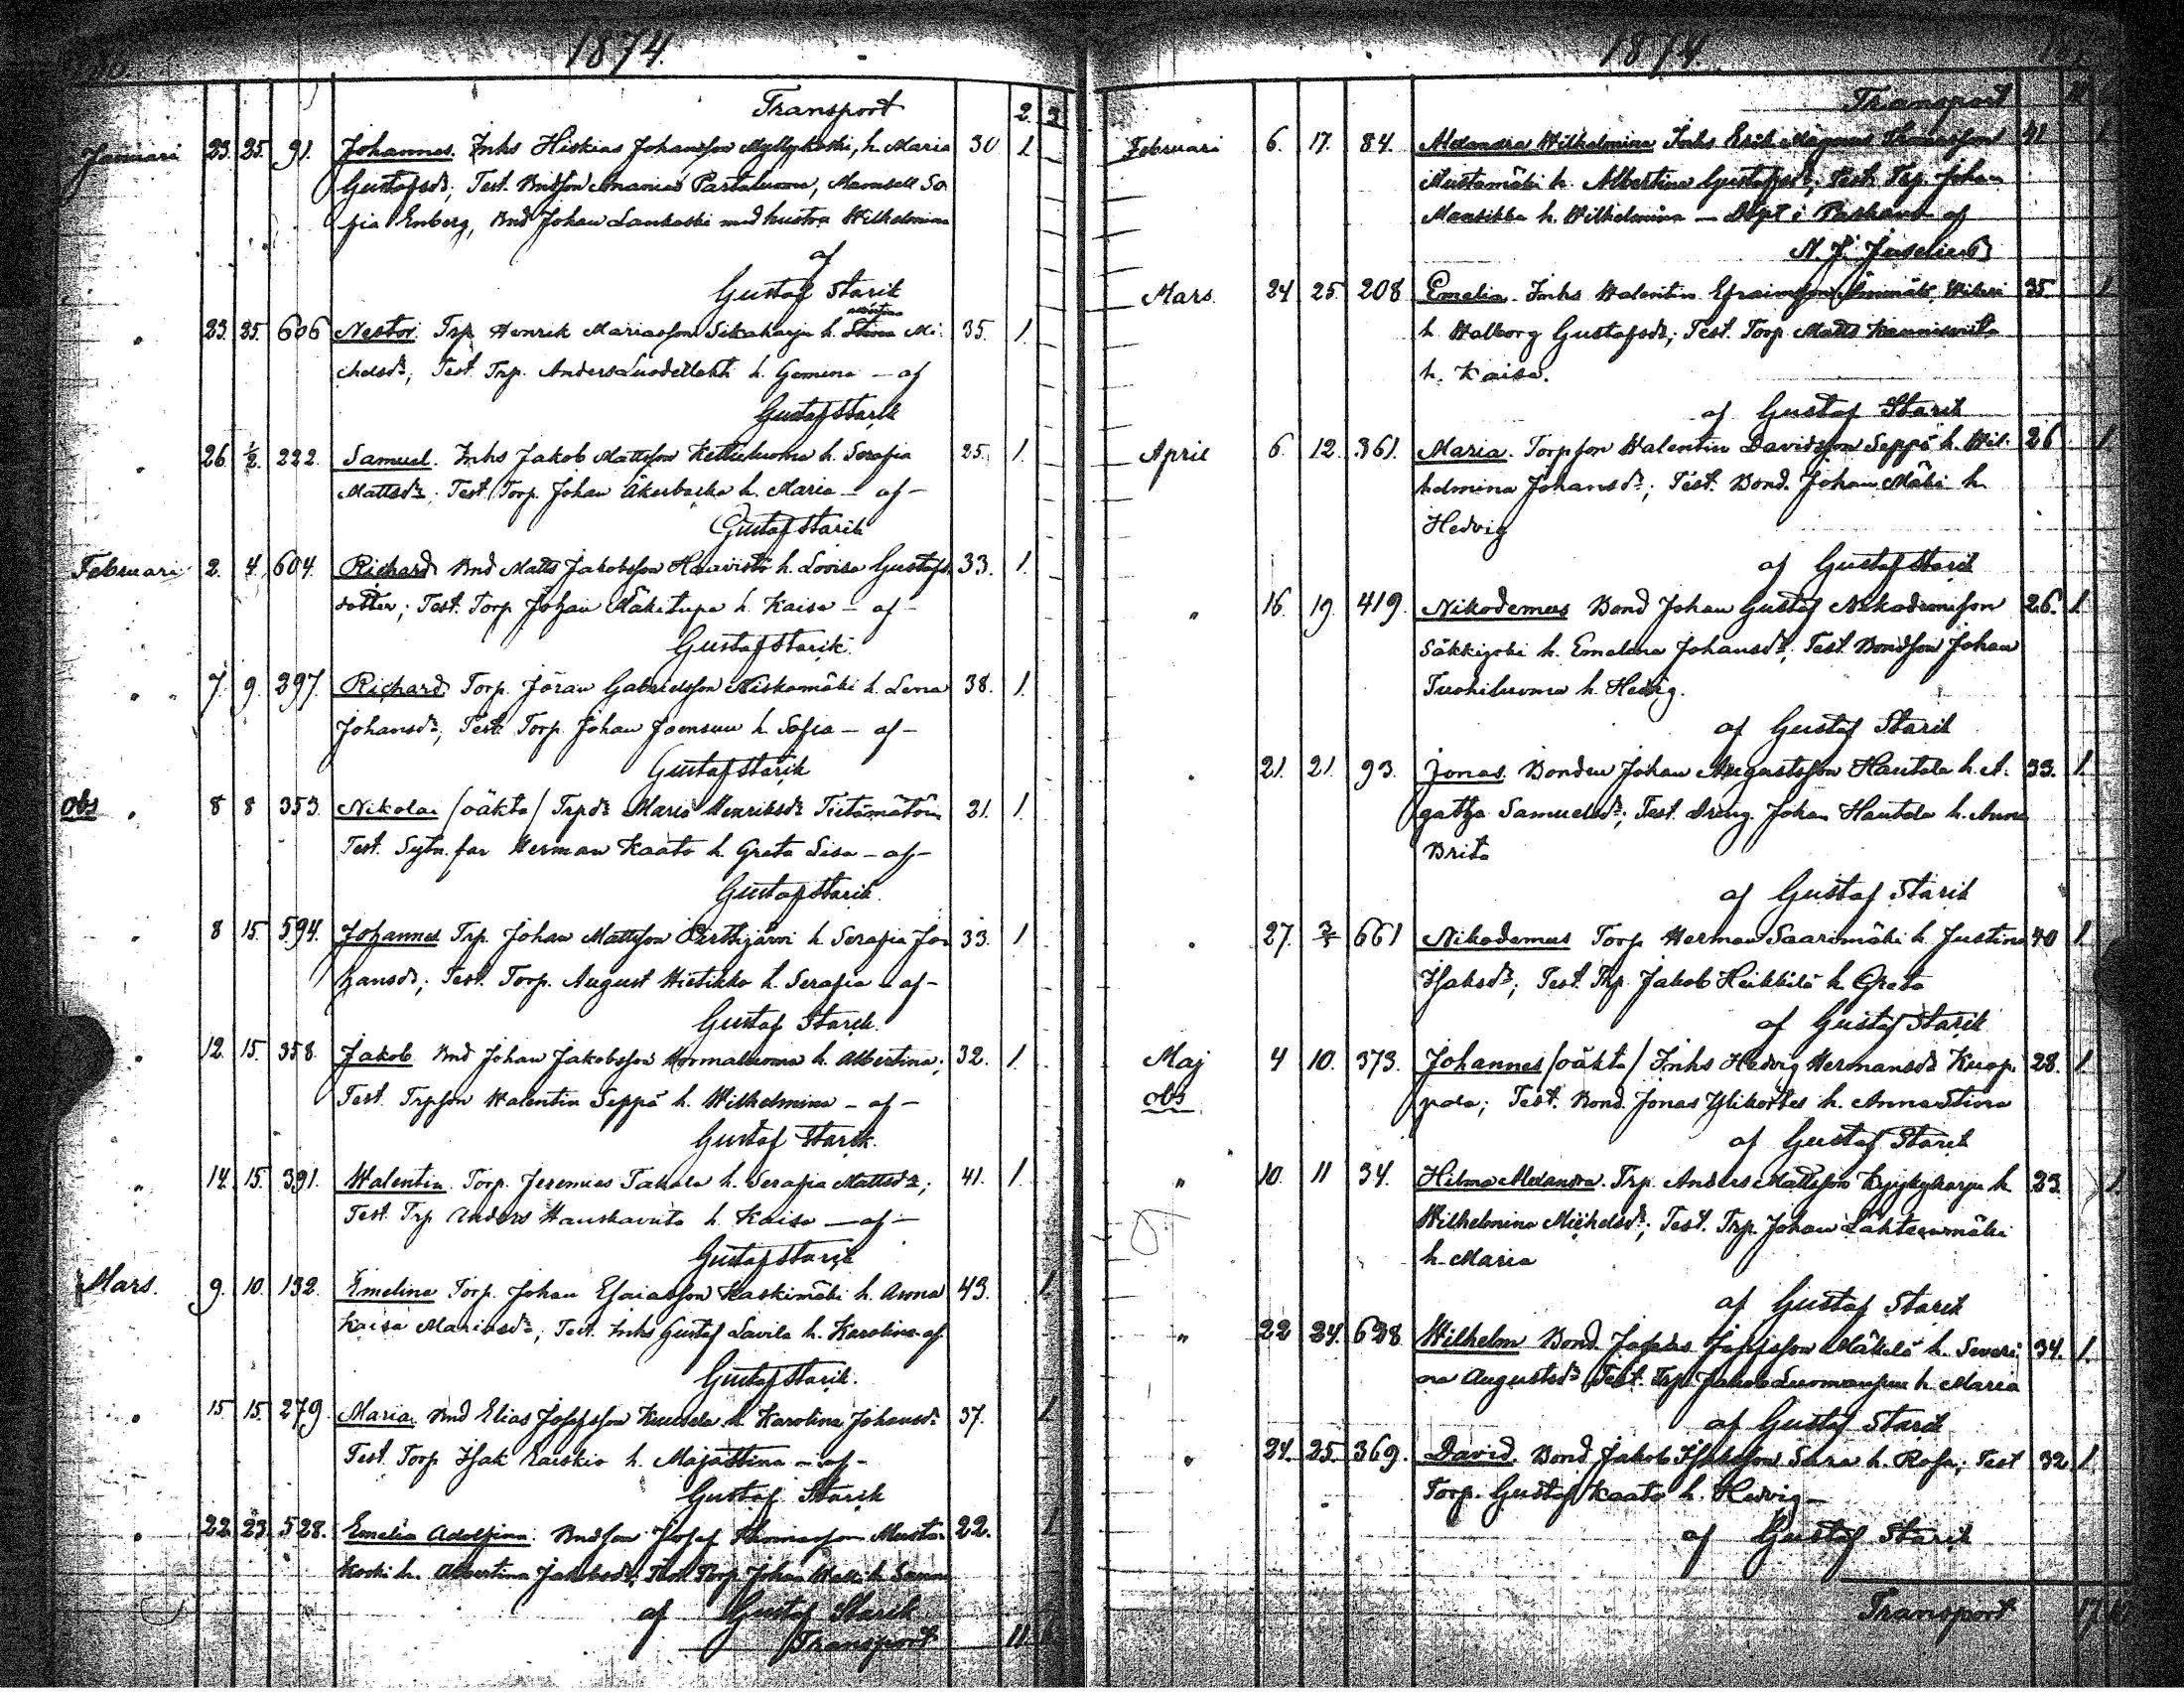 1874.
Transport 2. 3
Januari 23. 25. 91. Johannes. Inhs Hiskias Johansson Myllykoski, h. Maria 30 1
Gustafsdr; Test. Bndson Ananias Partaluoma, Mamsell So
fia Enberg, Bnd Johan Laukoski med hustru Wilhelmina
af
Gustaf Starik
" 23. 25. 606 Nestor. Trp. Henrik Mariasson Sikaharju h. Mi 35. 1.
chelsdr; Test. Trp. Anders Luodelahti h. Gemina – af
Gustaf Starik
" 26. 1/2. 222. Samuel. Inhs Jakob Mattsson h. Serafia 25. 1.
Mattsdr; Test. Torp. Johan Åkerbacka h. Maria – af –
Gustaf Starik
Februari 2. 4. 604. Richard Bnd Matts Jakobsson Haavisto h. Lovisa Gustafs 33. 1.
dotter; Test. Torp. Johan Mäkitupa h. Kaisa – af –
Gustaf Starik.
" " 7. 9. 297. Richard Torp. Jöran Gabrielsson Niskamäki h. Lena 38. 1.
Johansdr; Test. Torp. Johan Joensuu h. Sofia – af –
Gustaf Starik
obs " 8 8 353. Nikolai /oäkta/ Trpdr Maria Henriksdr 21. 1.
Test. Sytn. far Herman Kaato h. Greta Lisa – af –
Gustaf Starik.
" 8 15. 594. Johannes Trp. Johan Mattsson Perthijärvi h. Serafia Jo 33. 1.
hansdr; Test. Torp. August Hietikko h. Serafia – af –
Gustaf Starik.
" 12. 15. 358. Jakob Bnd Johan Jakobsson Hormaluoma h. Albertina; 32. 1.
Test. Trpson Walentin Seppä h. Wilhelmina – af –
Gustaf Starik.
" 14. 15. 391. Walentin. Torp. Jeremias Takala h. Serafia Mattsdr; 41. 1.
Test. Trp Anders h. Kaisa – af –
Gustaf Starik
Mars. 9. 10. 132. Emelina Torp. Johan Esaiasson Kaskimäki h. Anna 43. 1
Kaisa Mariasdr; Test. Inhs Gustaf Savila h. Karolina af
Gustaf Starik.
" 15 15. 279. Maria. Bnd Elias Josefsson Kuusela h. Karolina Johansdr 37. 1
Test. Torp Isak Raiskio h. Maja Stina – af –
Gustaf Starik
" 22. 23. 528. Emelia Adolfina. Bndson Josef Thomasson Musta 22. 1
koski h. Albertina Jakobsdr; Test. Torp. Johan h. Sanna
af Gustaf Starik
Transport 11.
1874.
Transport 11
Februari 6. 17. 84. Alexandra Wilhelmina Inhs Erik Magnus Thomasson 41 1
Mustamäki h. Albertina Gustafsdr; Test. Trp. Johan
Mansikka h. Wilhelmina – Döpt i af
N. J. Juselius
Mars. 24 25. 208 Emelia. Inhs Walentin Efraimsson 35. 1
h. Walborg Gustafsdr; Test. Torp. Matts
h. Kaisa.
af Gustaf Starik
April 6. 12. 361. Maria. Torpson Walentin Davidsson Seppä h. Wil 26 1
helmina Johansdr; Test. Bond. Johan Mäki h.
Hedvig
af Gustaf Starik
" 16. 19. 419. Nikodemus Bond Johan Gustaf Nikodemisson 26. 1.
Säkkijoki h. Emelina Johansdr; Test. Bondson Johan
Tuohiluoma h. Hedvig.
af Gustaf Starik
" 21. 21. 93. Jonas. Bonden Johan Augustsson Hautala h. A. 33. 1.
gatha Samuelsdr; Test. Dreng. Johan Hautala h. Anna
Brita
af Gustaf Starik
" 27. 3/5 661 Nikodemus Torp Herman Saarimäki h. Justina 40 1.
Isaksdr; Test. Trp. Jakob Heikkilä h. Greta
af Gustaf Starik
Maj 4 10. 373. Johannes /oäkta/ Inhs Hedvig Hermansdr Kuop 28. 1.
obs pala; Test. Bond. Jonas Ylikortes h. Anna Stina
af Gustaf Starik
" 10. 11 34. Hilma Alexandra. Trp. Anders Mattsson h. 23. 1.
Wilhelmina Michelsdr; Test. Trp. Johan Lähteenmäki
h. Maria
af Gustaf Starik
" 22 24. 628 Wilhelm Bond. Josefsson Mäkelä h. Severi 34. 1.
na Augustsdr Test. Trp. Jakob Luomansuu h. Maria
af Gustaf Starik
" 24. 25. 369. David. Bond Jakob Isaksson h. Rosa; Test 32 1.
Torp. Gustaf Kaato h. Hedvig –
af Gustaf Starik
Transport 17